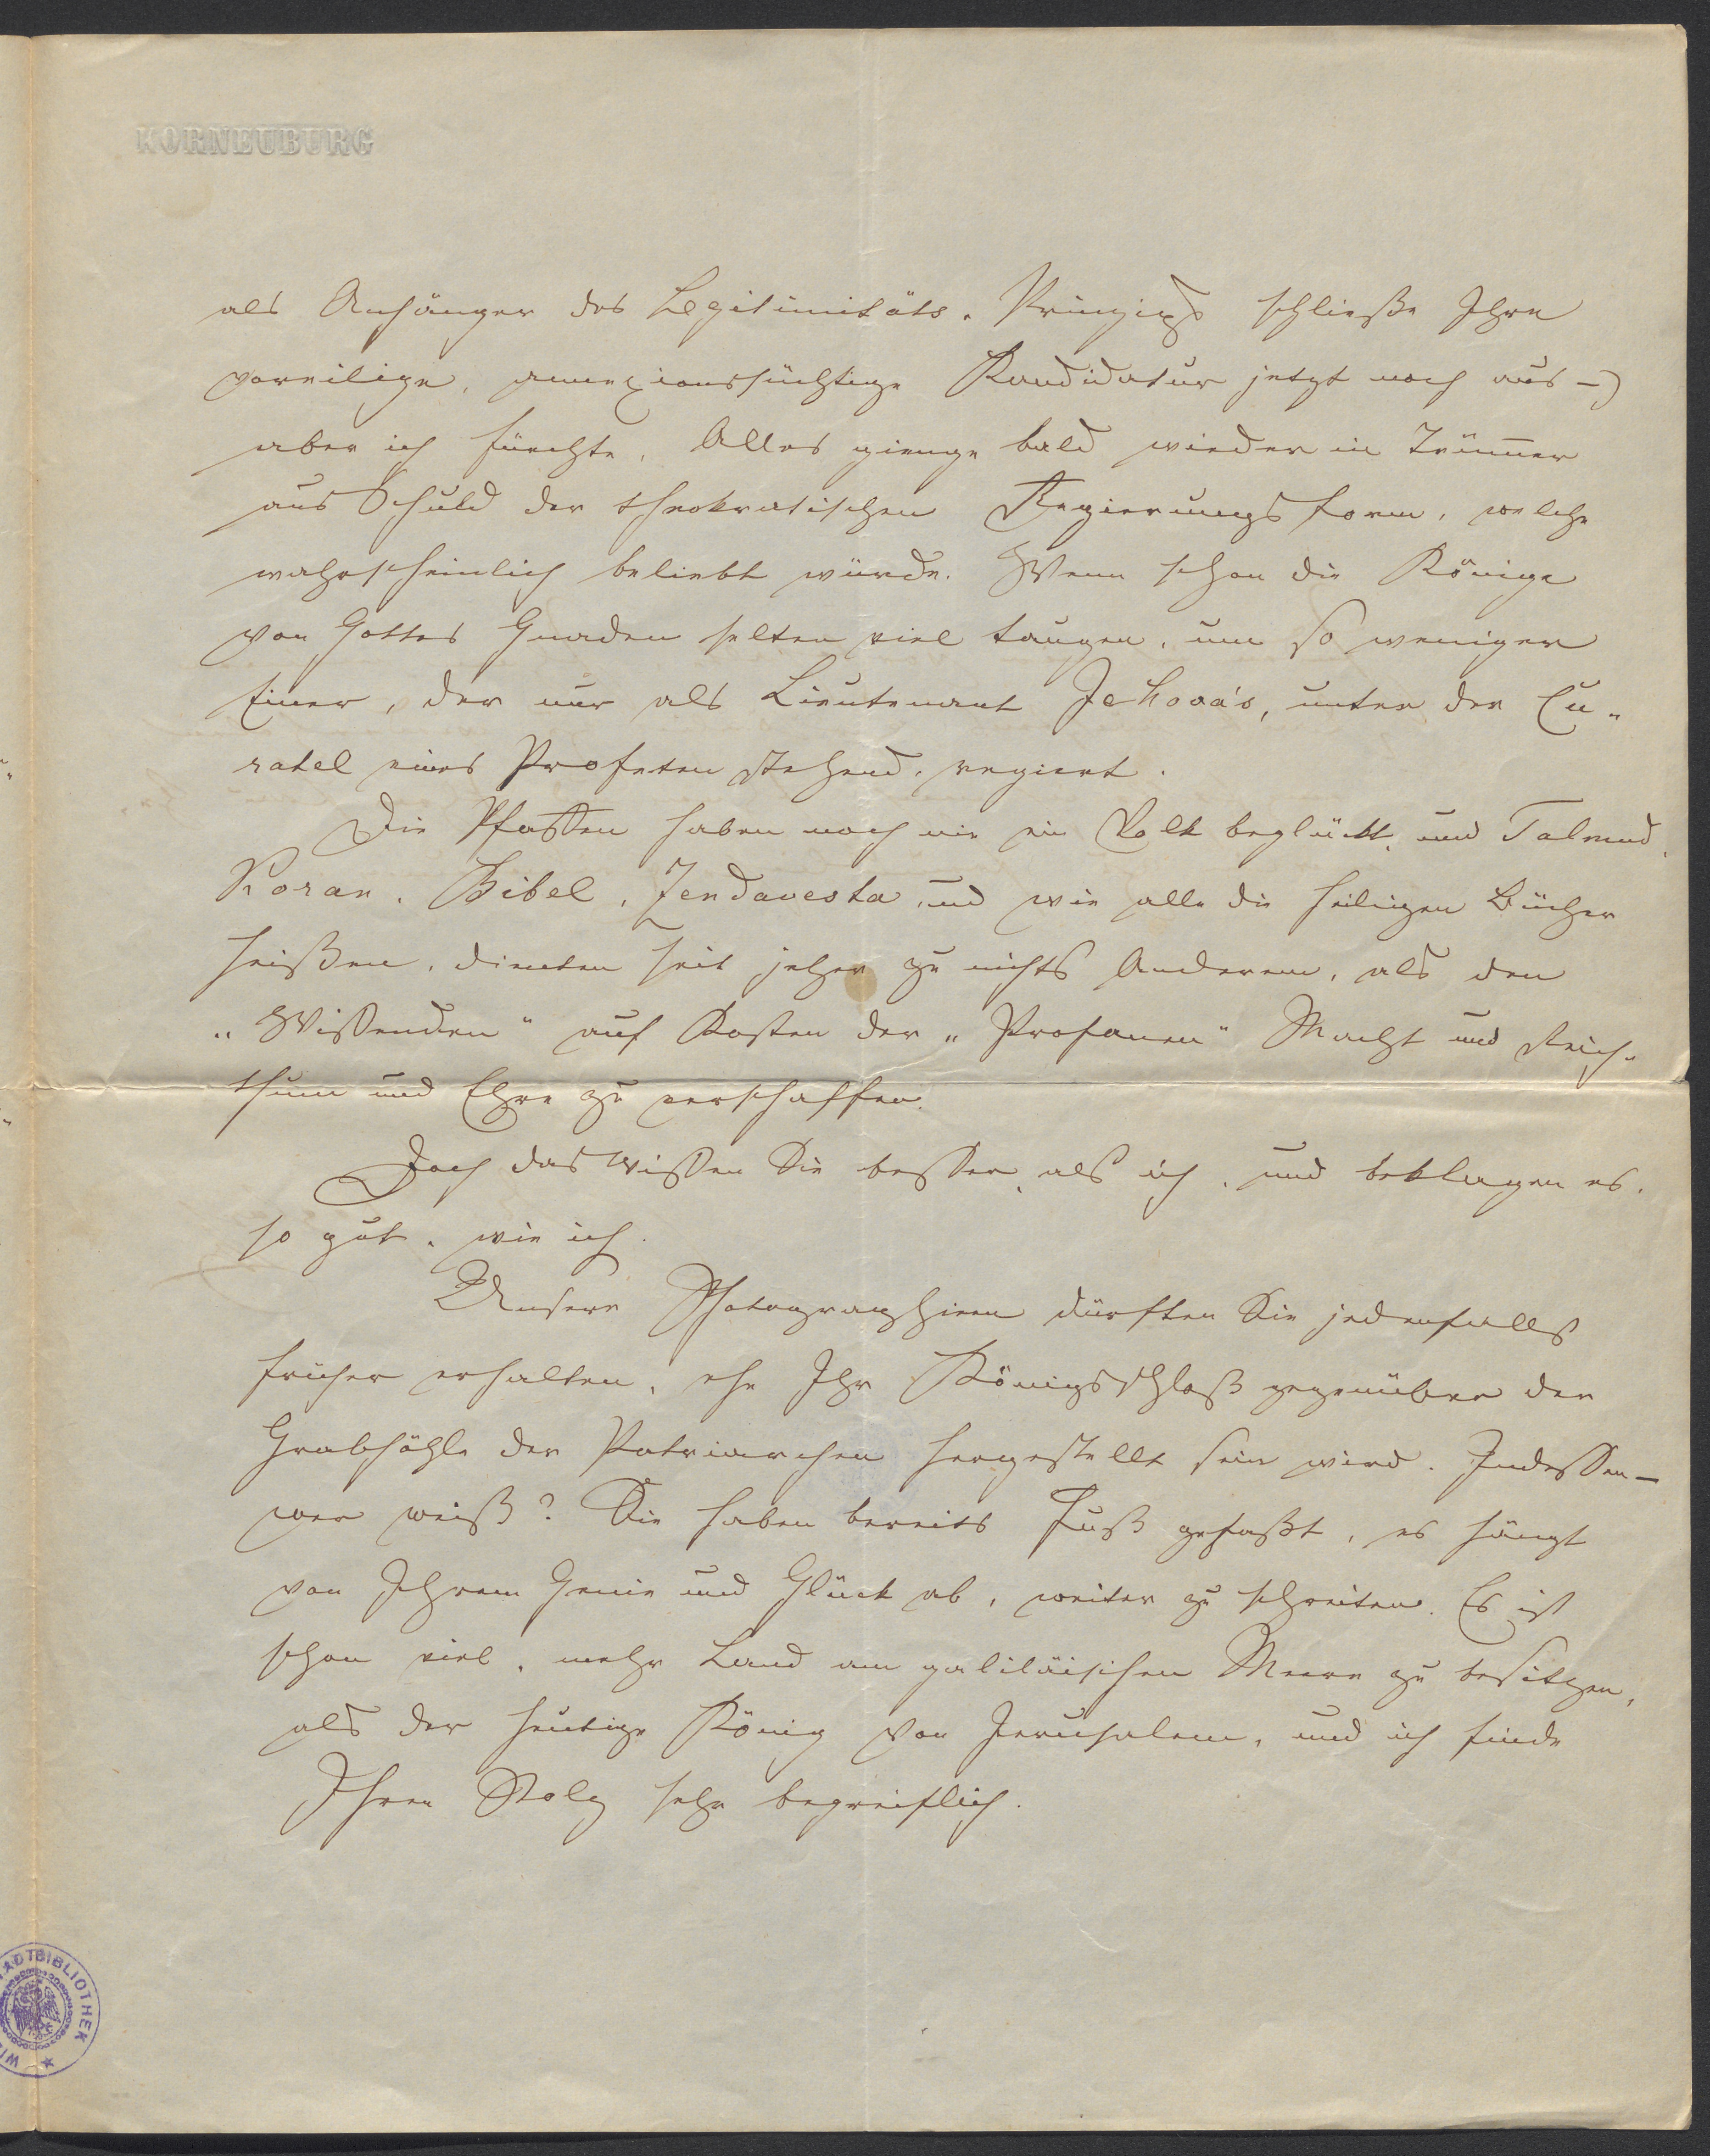 KORNEUBURG
als Anhänger des Legitimitäts-Prinzips schließe Ihre
voreilige, annexionssüchtige Kandidatur jetzt noch aus –)
aber ich fürchte, Alles gienge bald wieder in Trümmer
aus Schuld der theokratischen Regierungsform, welche
wahrscheinlich beliebt würde. Wenn schon die Könige
von Gottes Gnaden selten viel taugen, um so weniger
Einer, der nur als Lieutenant Jehova's, unter der Cu-
ratel eines Profeten stehend, regiert.
Die Pfaffen haben noch nie ein Volk beglückt, und Talmud,
Koran, Bibel, Zendavesta und wie alle die heiligen Bücher
heißen, dienten seit jeher zu nichts Anderem, als den
„Wissenden" auf Kosten der „Profanen" Macht und Reich-
thum und Ehre zu verschaffen.
Doch das wissen Sie besser, als ich, und beklagen es,
so gut, wie ich.
Unsere Photographieen dürften Sie jedenfalls
früher erhalten, ehe Ihr Königsschloß gegenüber der
Grabhöhle der Patriarchen hergestellt sein wird. Indessen –
wer weiß? Sie haben bereits Fuß gefaßt, es hängt
von Ihrem Genie und Glück ab, weiter zu schreiten. Es ist
schon viel, mehr Land am galiläischen Meere zu besitzen,
als der heutige König von Jerusalem, und ich finde
Ihren Stolz sehr begreiflich.
ADTBIBLIOTHEK
WI